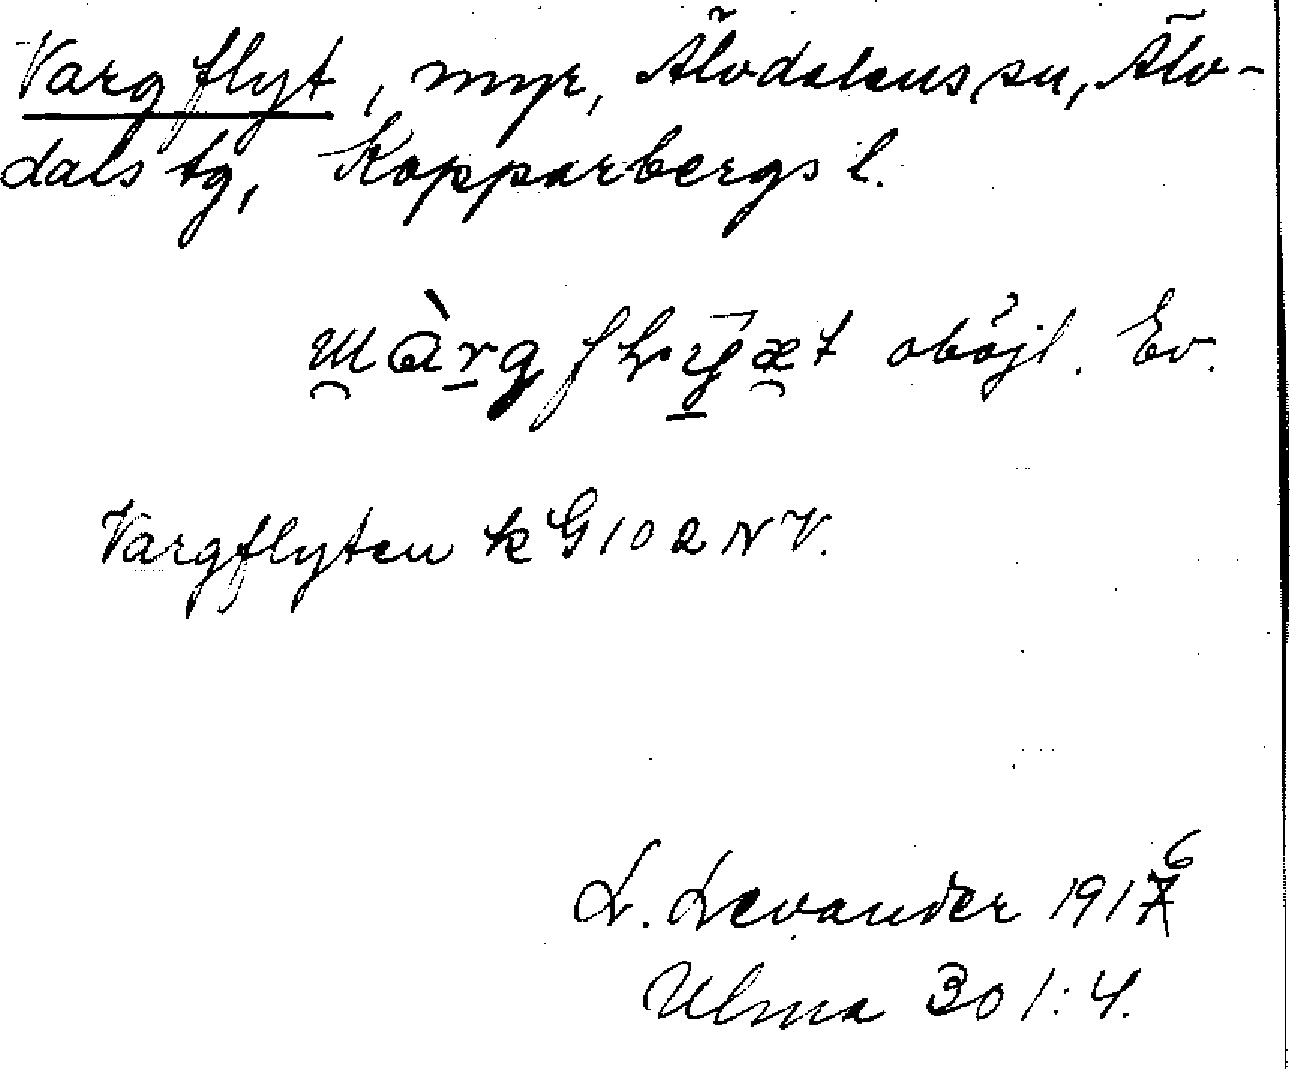 Vargflyt, myr, Älvdalens sn, Älv-
dals tg, Kopparbergs l.
oböjl. Ev.
Vargflyten kG 102 NV.
L. Levander 1916
Ulma 301:4.